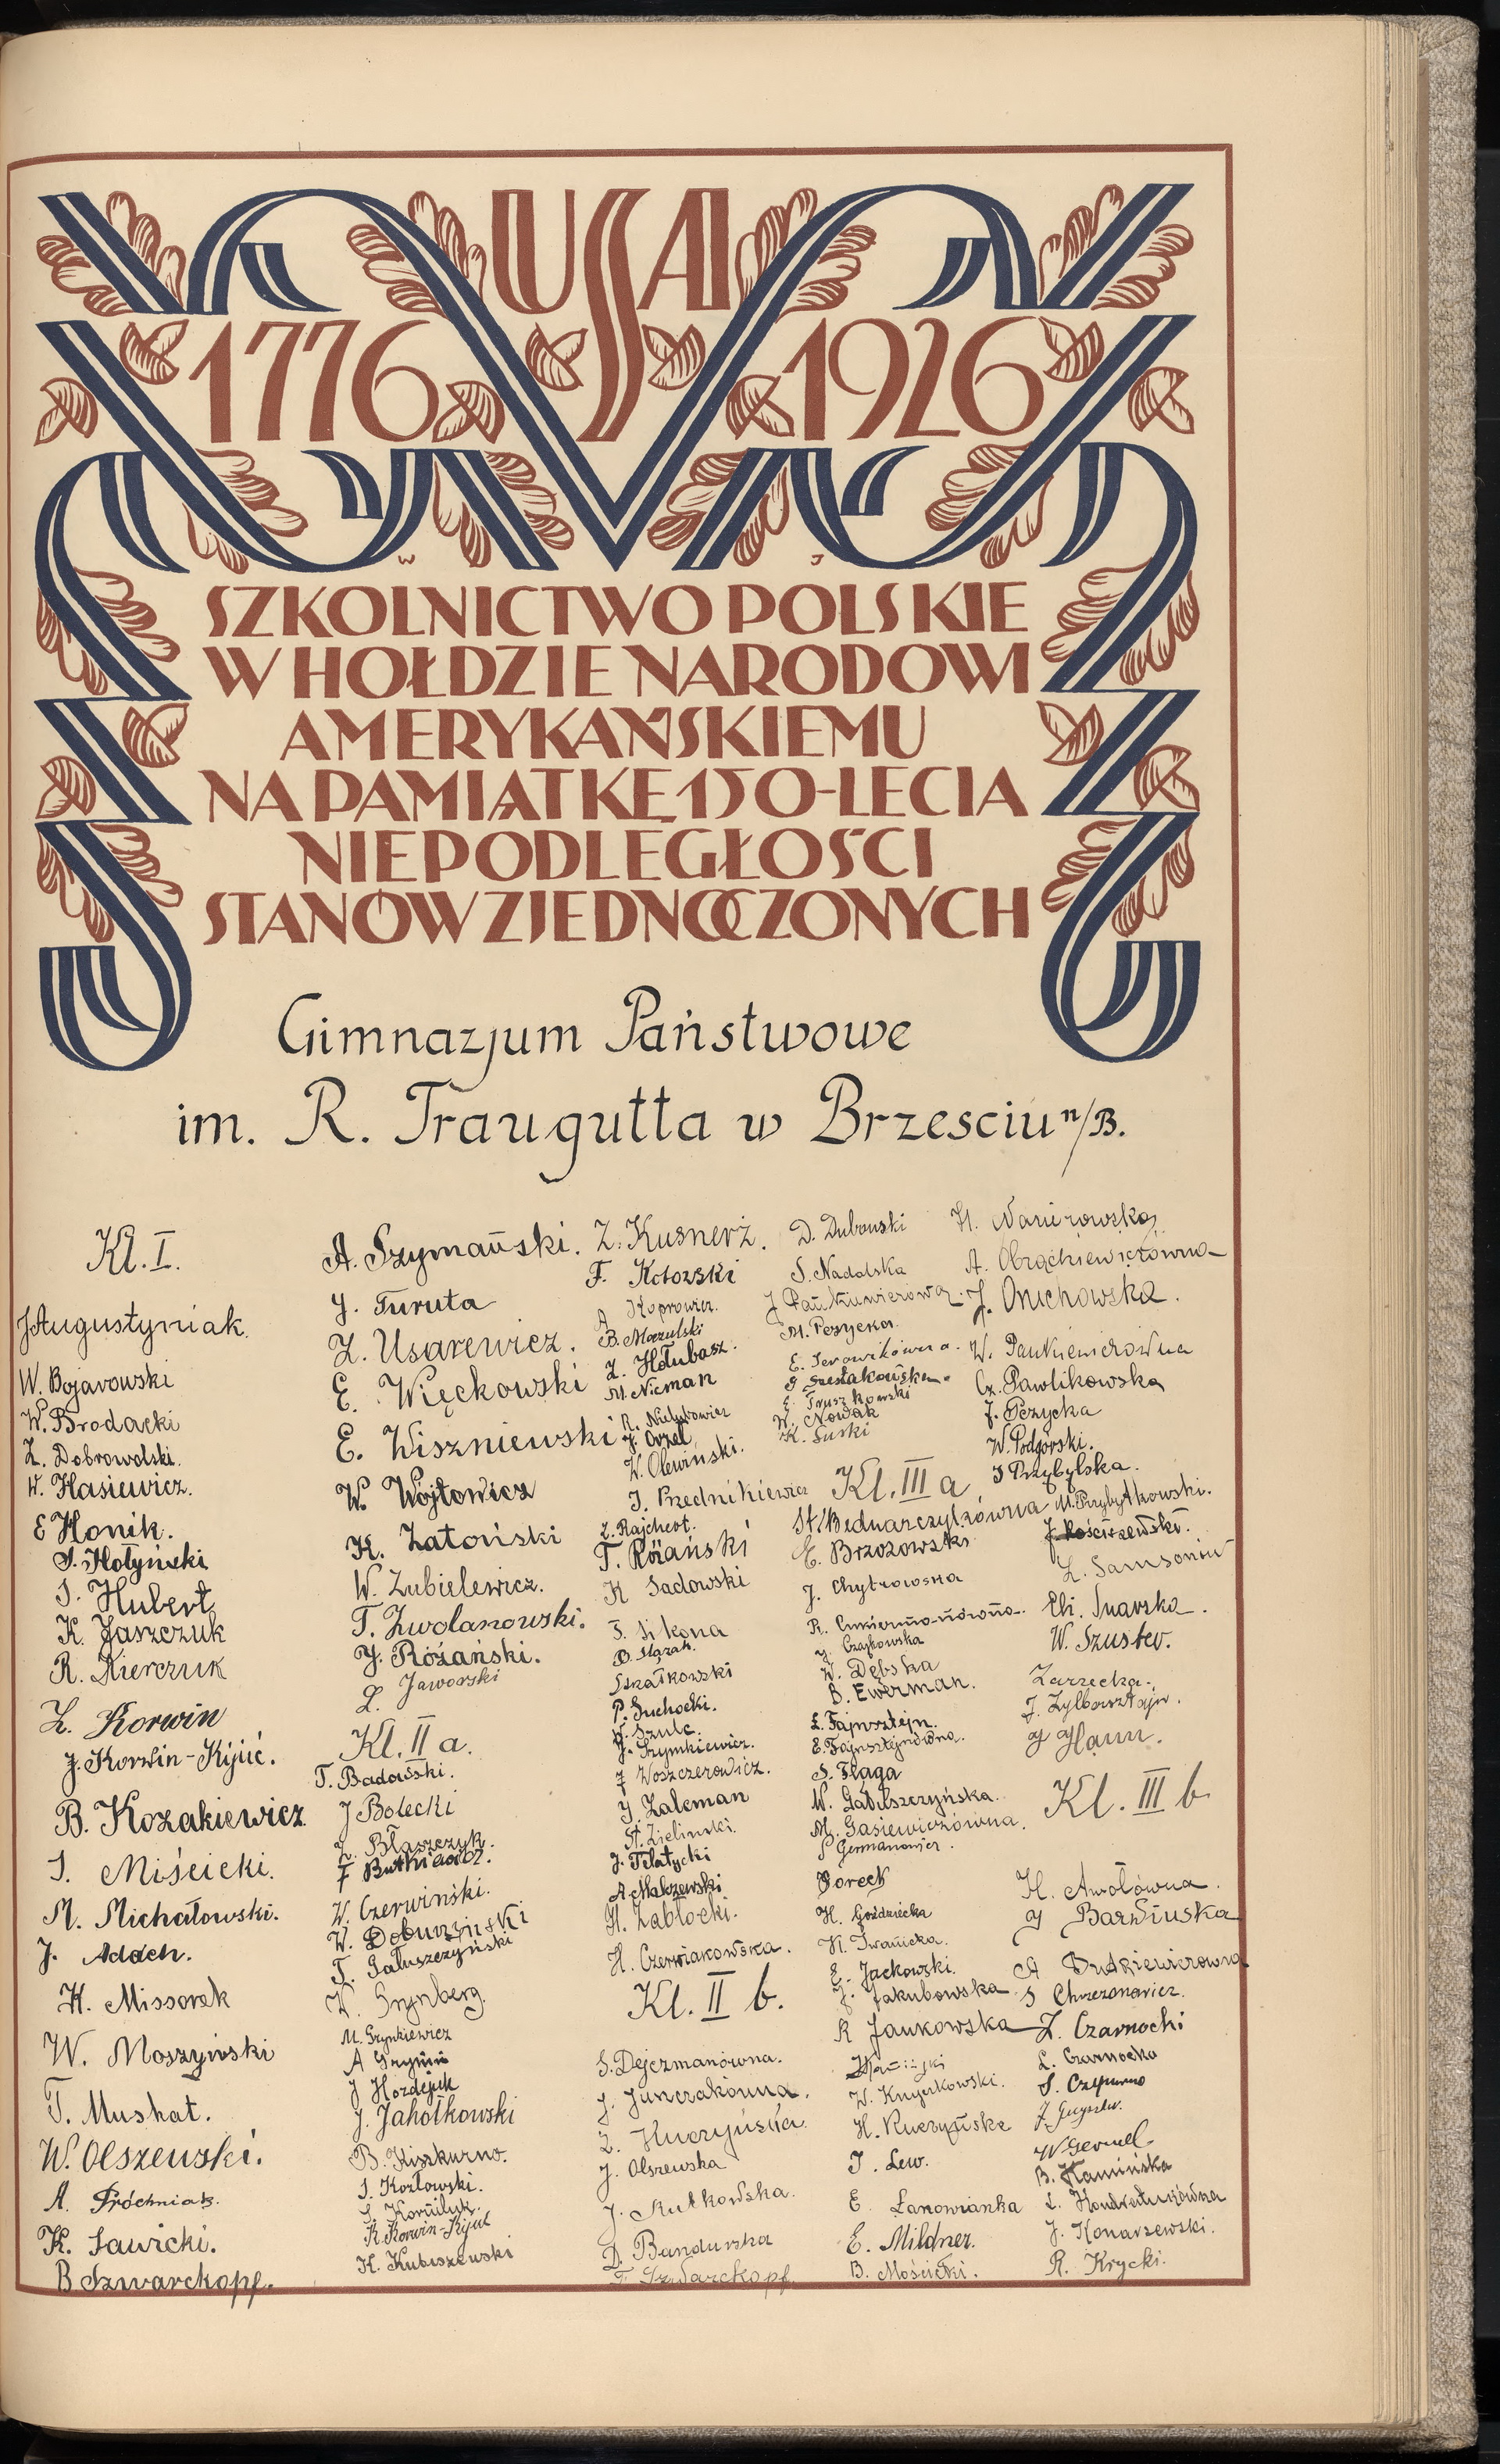 USA
1776 1926
W J
SZKOLNICTWO POLSKIE
W HOŁDZIE NARODOWI
AMERYKAŃSKIEMU
NA PAMIĄTKĘ 150-LECIA
NIEPODLEGŁOŚCI
STANÓW ZJEDNOCZONYCH
Gimnazjum Państwowe
im. R. Traugutta w Brzesciu n/B.
Kl. I.
J Augustyniak.
W. Bojarowski
W. Brodacki
Z. Dobrowolski.
W. Hasiewicz.
E Honik.
S. Hołyński
S. Hubert
K. Jaszczuk
R. Kierczuk
Z. Korwin
J. Korwin-Kijuć.
B. Kozakiewicz
S. Mościcki.
M. Michałowski.
J. Adach.
H. Missorek
W. Moszyński
T. Mushat.
W. Olszewski.
A. Próchniak.
K. Sawicki.
B Szwarckopf.
A. Szymański.
J. Turuta
Z. Usarewicz.
E. Więckowski
E. Wiszniewski
W. Wójtowicz
K. Zatoński
W. Zubielewicz.
T. Zwolanowski.
J. Różański.
L. Jaworski
Kl. II a.
T. Badowski.
J Bolecki
Z. Błaszczyk.
F Butkiewicz.
W. Czerwiński.
W. Doburzyński
T. Gałuszczyński
K. Grynberg.
M. Grynkiewicz
A
J Hozdejuk
J. Jahołkowski
B. Kiszkurno.
S. Kozłowski.
S. Korniluk.
K. Korwin-Kijuć
H. Kubiszewski
Z. Kusnerz.
F. Kotowski
A Koprowicz.
B. Mazulski
Z. Hołubasz.
M. Nieman
R. Nielubowicz
J. Orzel
W. Olewiński.
J. Prednikiewicz
Z. Rajchert.
T. Różański
K Sadowski
S. Sikona
B. Slązak.
Szkałkowski
P. Suchocki.
W. Szulc.
J. Szymkiewicz.
J Woszczerowicz.
J. Zaleman
St. Zieliński.
J. Fłatycki
A Makszewski
H. Zabłocki.
H. Czerniakowska.
Kl. II b.
S. Dejczmanówna.
J. Junczakówna.
Z. Kuczyńska.
J. Olszewska
J. Rutkowska.
D. Bandurska
F Szwarckopf.
D. Dubowski
S. Nadolska
J Pańkiewiczówna.
M. Pezycka.
E. Serowikówna.
S Szestakowska.
E. Truszkowski
W. Nowak
K. Suski
Kl. III a
St. Bednarczykówna
E. Brzozowski
J. Chytrowska
R. Cukiermanówna.
J. Czajkowska
W. Dębska
B. Ewerman.
L. Fajnsztejn.
E. Fajnsztejnówna.
S. Flaga
W. Gabilszczyńska.
M. Gąsiewiczówna.
S Germanowicz.
Boreck
H. Goździecka
H. Iwanicka.
E. Jackowski.
J. Jakubowska
R Jankowska
W. Knyrkowski.
H. Kuczyńska
I. Lew.
E. Łanowianka
E. Mildner.
B. Mościcki.
H. Narutowska
A. Obrąckiewiczówna
J. Onichowska.
W. Pańkiewiczówna
Cz. Pawlikowska
J. Pezycka
W. Podgórski.
J Przybylska.
M. Przybytkowski.
J. Kościszewski.
Z. Samsonów
Eli. Snarska.
W. Szuster.
Zarzecka.
J. Zylbersztajn.
J Hann.
Kl. III b.
H. Awołówna.
J Barwiuska
A Butkiewiczówna
S Chrzanowicz.
Z. Czarnocki
L. Czarnocka
S. Czepurno
W Germel.
B. Kamińska
L. Kondratukówna
J. Konarzewski.
R. Krycki.